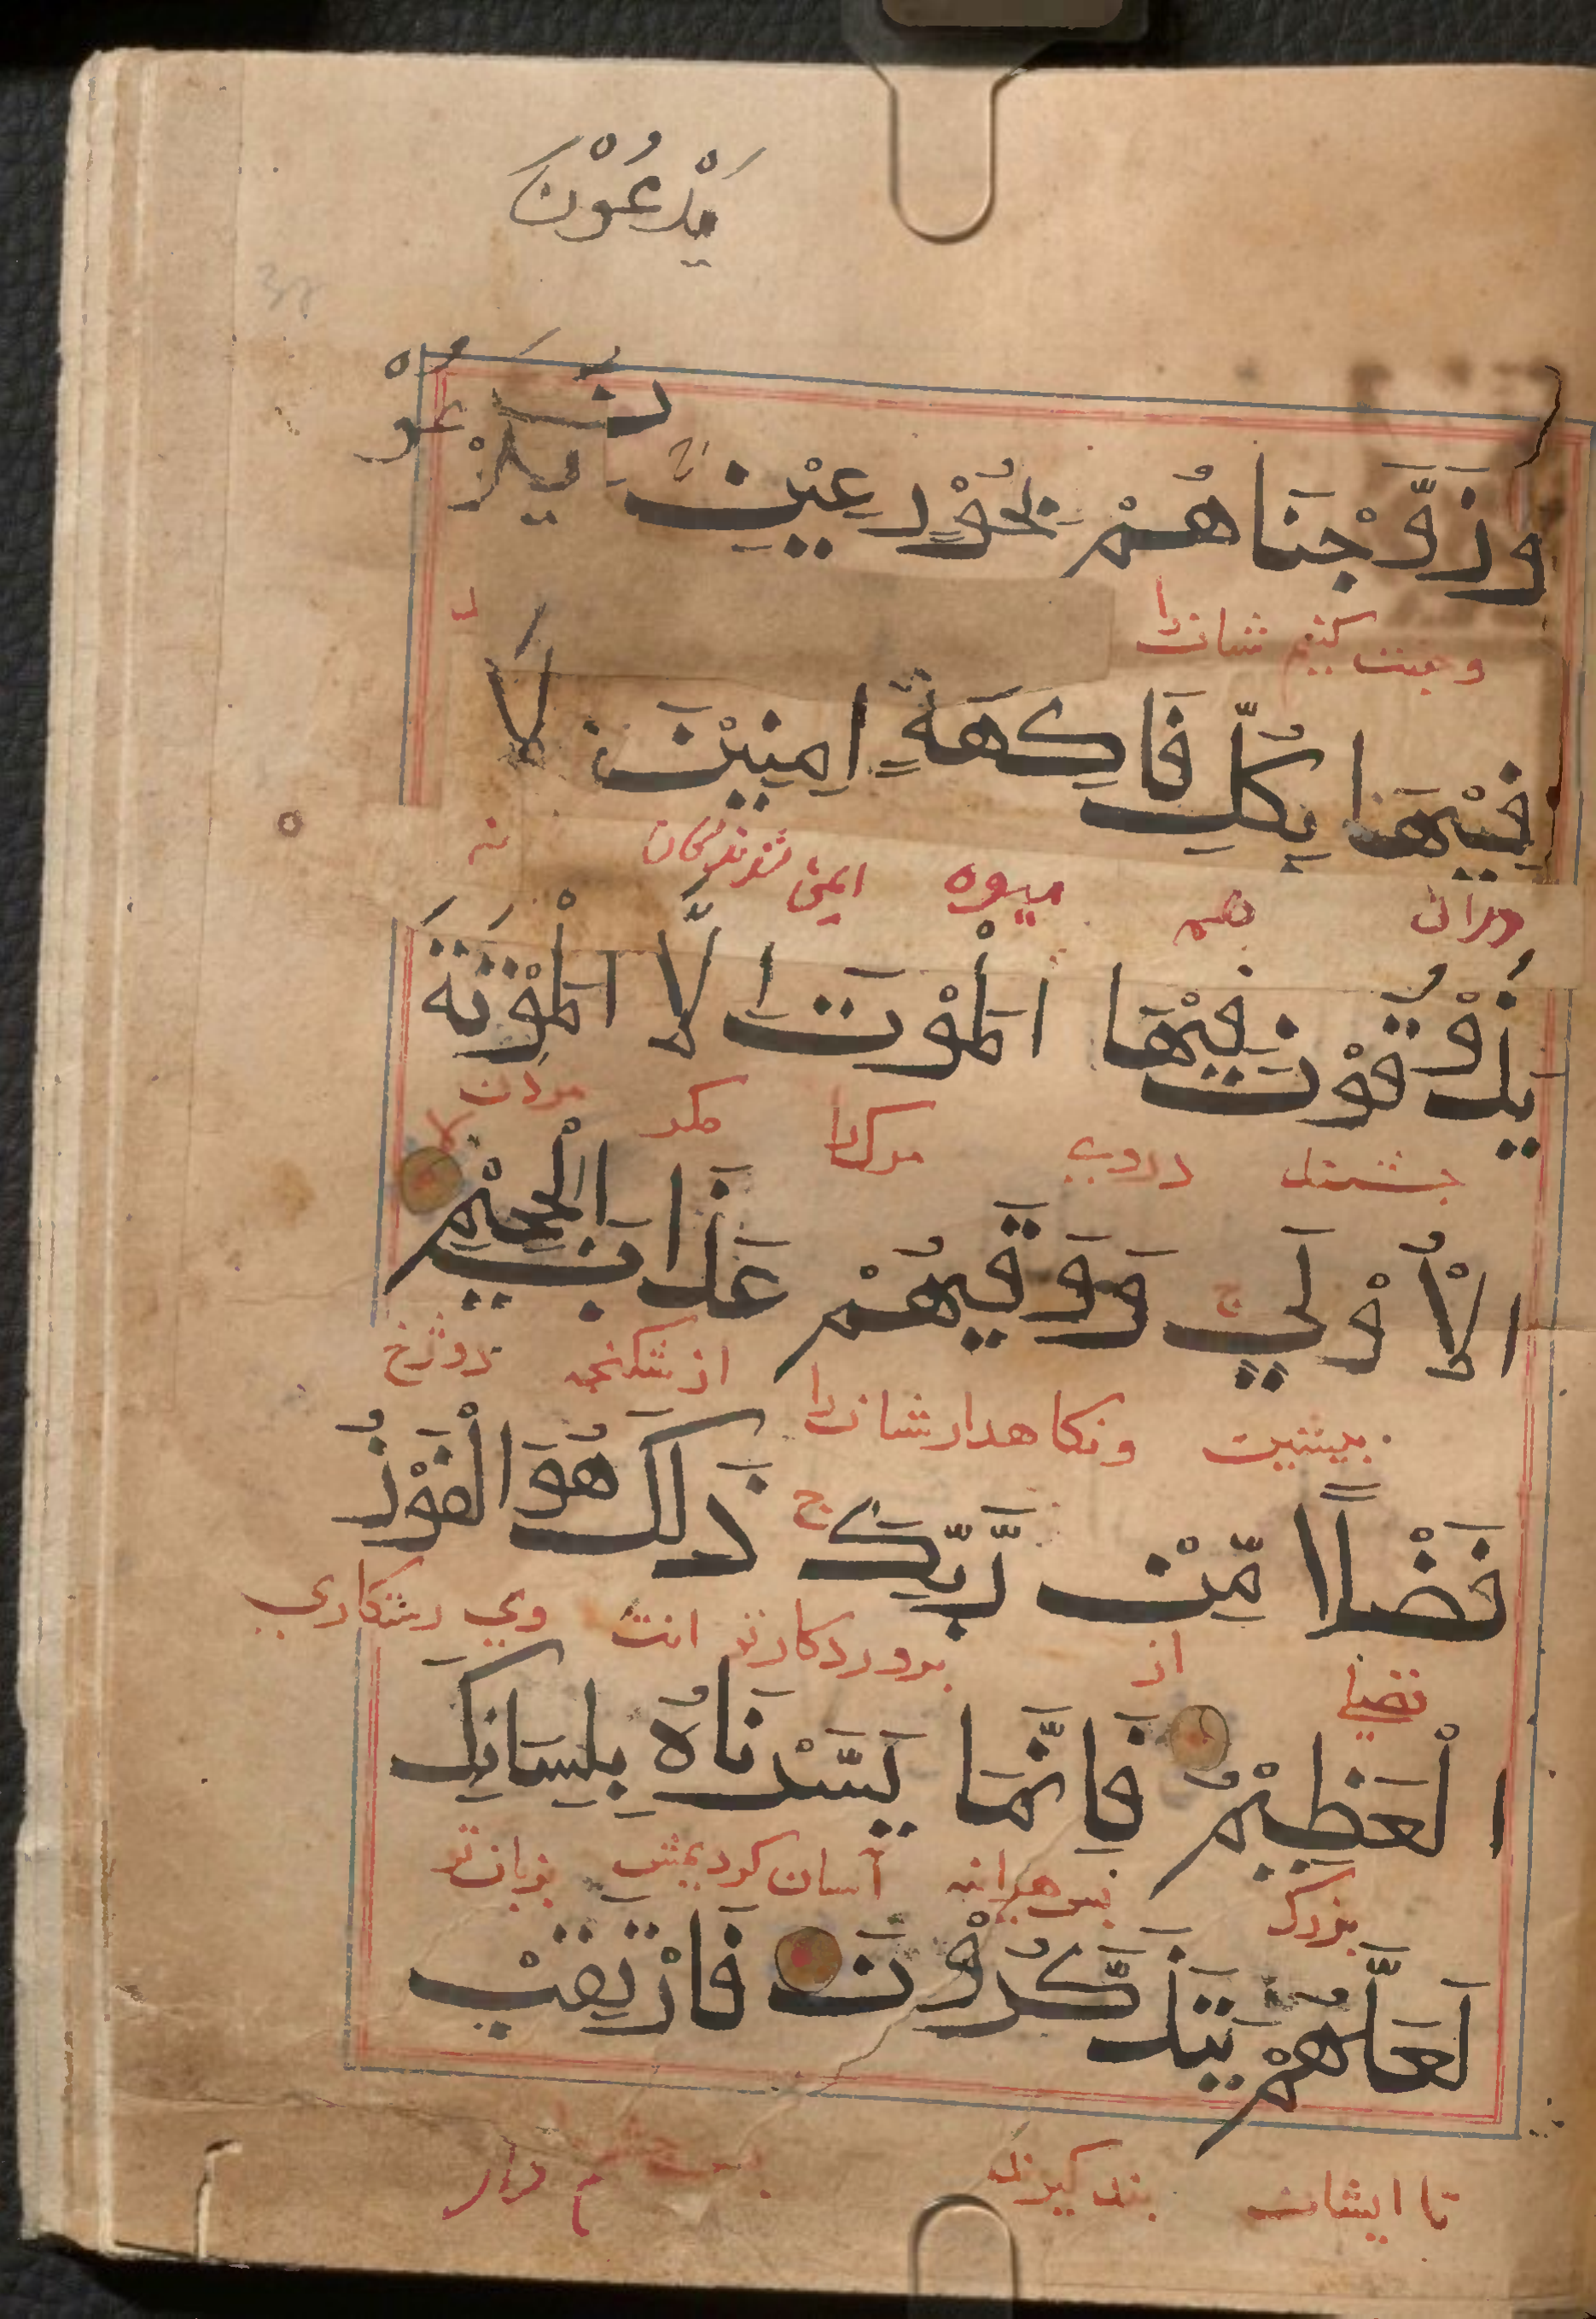 يَدْعُوْنَ
وَزَوَّجْنَاهُمْ بِحُوْرٍ عِيْنٍ يَدْعُوْنَ
وجفت کنیم شانرا
فِيْهَا بِكُلِّ فَاكِهَةٍ اٰمِنِيْنَ لَا
دران همه میوه ایمن شوندگان نه
يَذُوْقُوْنَ فِيْهَا الْمَوْتَ اِلَّا الْمَوْتَةَ
چشند دروی مرگ را مگر مردن
الْاُوْلٰي ج وَوَقٰيهُمْ عَذَابَ الْجَحِيْمِ
پیشین ونگاهدار شانرا از شکنجه دوزخ
فَضْلًا مِّنْ رَّبِّكَ ج ذٰلِكَ هُوَ الْفَوْزُ
فضلی از پروردگار تو انت وی رستگاری
الْعَظِيْمُ فَاِنَّمَا يَسَّرْنَاهُ بِلِسَانِكَ
بزرگ پس هراینه آسان کردیمش بزبان تو
لَعَلَّهُمْ يَتَذَكَّرُوْنَ فَارْتَقِبْ
تا ایشان پند گیرند دار